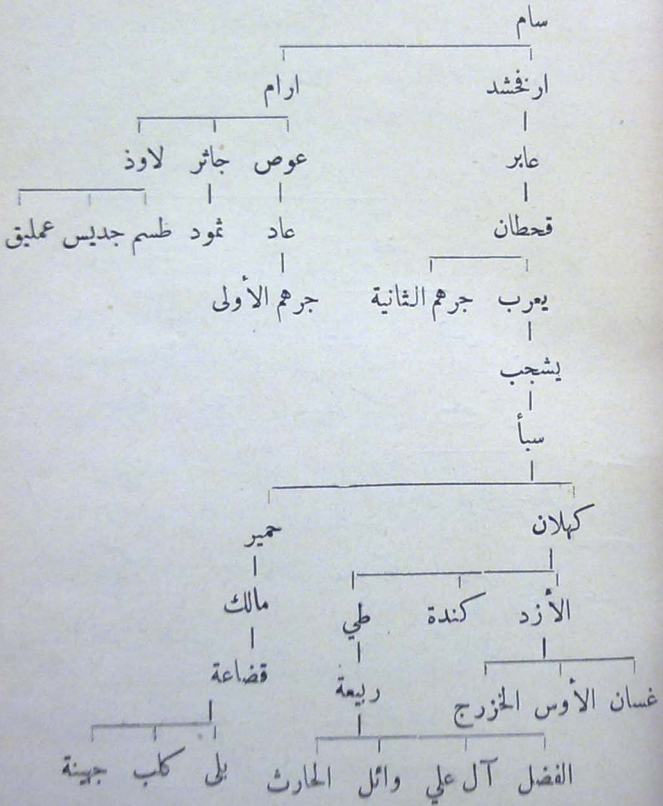 سام
ارفخشد ارام
عابر عوص جاثر لاوذ
قحطان عاد ثمود طسم جديس عمليق
يعرب جرهم الثانية جرهم الأولى
يشجب
سبأ
كهلان حمير
الأزد كندة طي مالك
غسان الأوس الخزرج ربيعة قضاعة
الفضل آل علي وائل الحارث بلى كلب جهينة